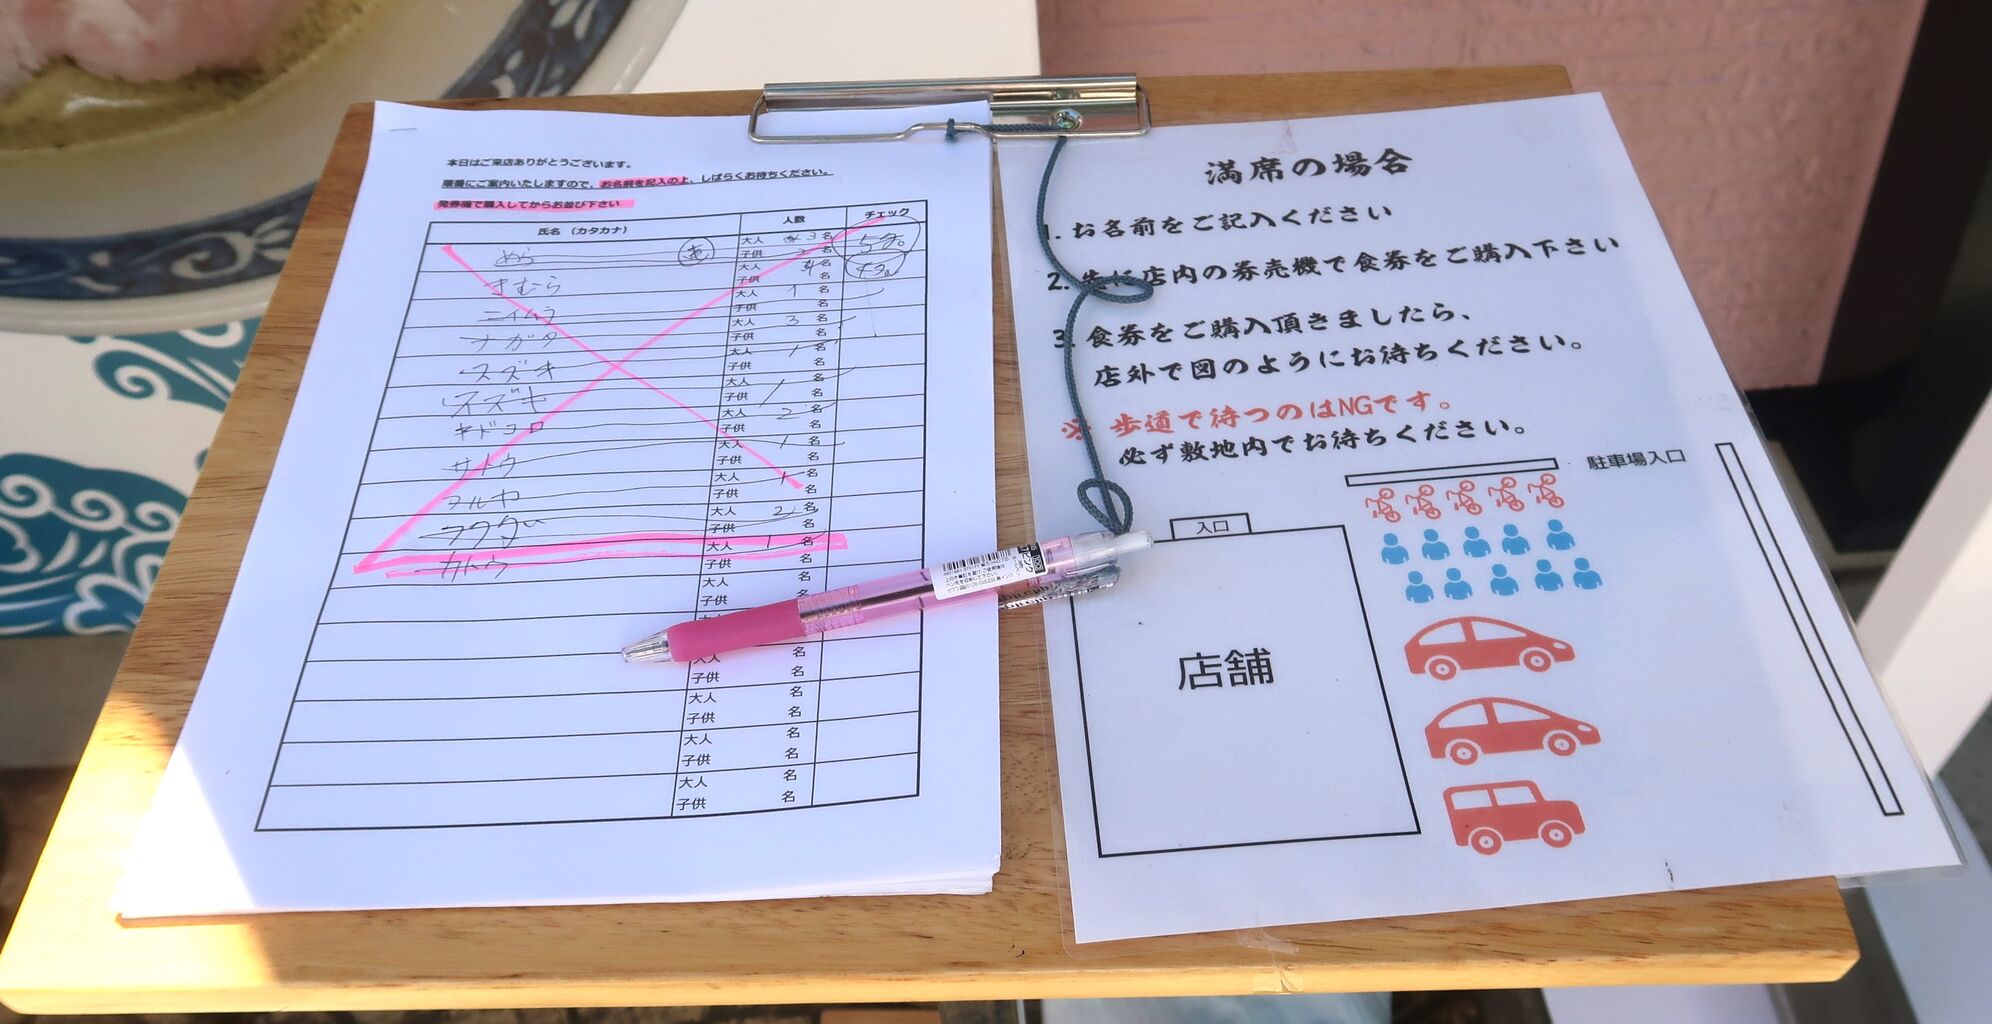 本日はご来店ありがとうございます。
順番にご案内いたしますので、お名前を記入の上、しばらくお待ちください。
発券機で購入してからお並び下さい
氏名（カタカナ） 人数 チェック
めら 大人 3名 5名。
子供 2名
きむら 大人 4名
子供 名
ニイムラ 大人 1名
子供 名
ナガタ 大人 3名
子供 名
スズキ 大人 1名
子供 名
スズキ 大人 1名
子供 名
キドコロ 大人 2名
子供 名
サトウ 大人 1名
子供 名
マルヤ 大人 1名
子供 名
大人 2名
子供 名
カトウ 大人 1名
子供 名
大人
子供 名
大人 名
子供 名
大人 名
子供 名
大人 名
子供 名
大人 名
子供 名
満席の場合
1. お名前をご記入ください
2. 店内の券売機で食券をご購入下さい
3. 食券をご購入頂きましたら、
店外で図のようにお待ちください。
※ 歩道で待つのはNGです。
必ず敷地内でお待ちください。
駐車場入口
入口
店舗